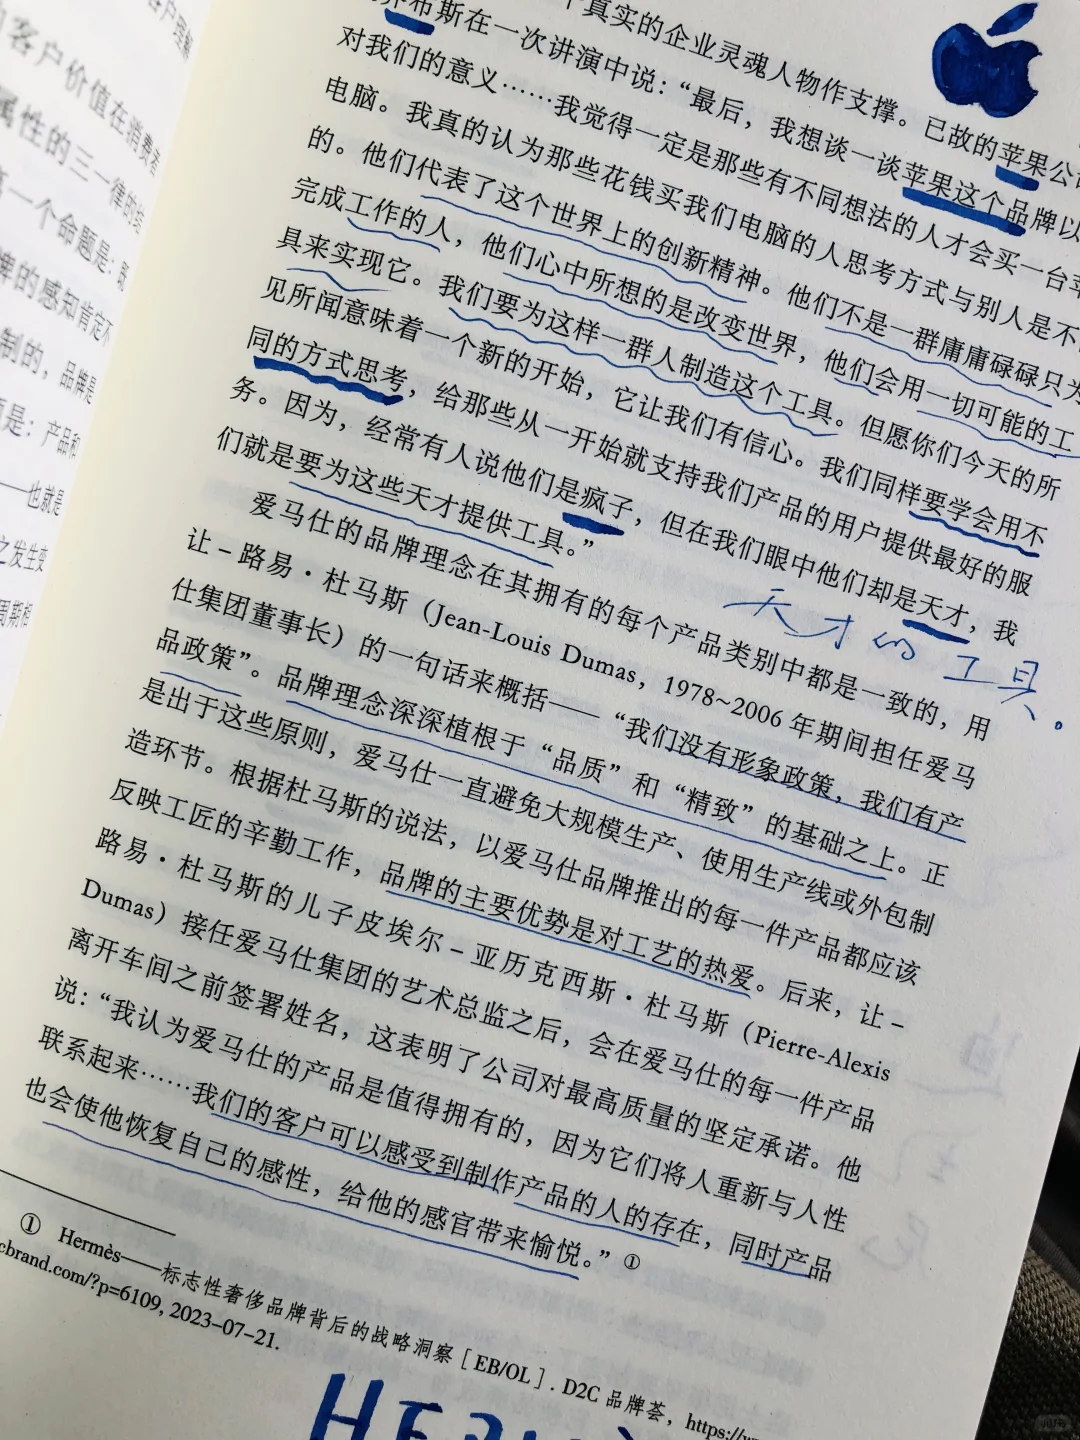 个真实的企业灵魂人物作支撑。已故的苹果公
乔布斯在一次讲演中说：“最后，我想谈一谈苹果这个品牌以
对我们的意义……我觉得一定是那些有不同想法的人才会买一台苹
电脑。我真的认为那些花钱买我们电脑的人思考方式与别人是不
的。他们代表了这个世界上的创新精神。他们不是一群庸庸碌碌只为
完成工作的人，他们心中所想的是改变世界，他们会用一切可能的工
具来实现它。我们要为这样一群人制造这个工具。但愿你们今天的所
见所闻意味着一个新的开始，它让我们有信心。我们同样要学会用不
同的方式思考，给那些从一开始就支持我们产品的用户提供最好的服
务。因为，经常有人说他们是疯子，但在我们眼中他们却是天才，我
们就是要为这些天才提供工具。”
天才的工具。
爱马仕的品牌理念在其拥有的每个产品类别中都是一致的，用
让-路易·杜马斯（Jean-Louis Dumas，1978~2006 年期间担任爱马
仕集团董事长）的一句话来概括——“我们没有形象政策，我们有产
品政策”。品牌理念深深植根于“品质”和“精致”的基础之上。正
是出于这些原则，爱马仕一直避免大规模生产、使用生产线或外包制
造环节。根据杜马斯的说法，以爱马仕品牌推出的每一件产品都应该
反映工匠的辛勤工作，品牌的主要优势是对工艺的热爱。后来，让-
路易·杜马斯的儿子皮埃尔-亚历克西斯·杜马斯（Pierre-Alexis
Dumas）接任爱马仕集团的艺术总监之后，会在爱马仕的每一件产品
离开车间之前签署姓名，这表明了公司对最高质量的坚定承诺。他
说：“我认为爱马仕的产品是值得拥有的，因为它们将人重新与人性
联系起来……我们的客户可以感受到制作产品的人的存在，同时产品
也会使他恢复自己的感性，给他的感官带来愉悦。”①
① Hermès——标志性奢侈品牌背后的战略洞察［EB/OL］. D2C 品牌荟，https://w
cbrand.com/?p=6109, 2023-07-21.
客户价值在消费者
属性的三一律的综
一个命题是：既
牌的感知肯定不
制的，品牌是
而是：产品和
——也就是
之发生变
周期相